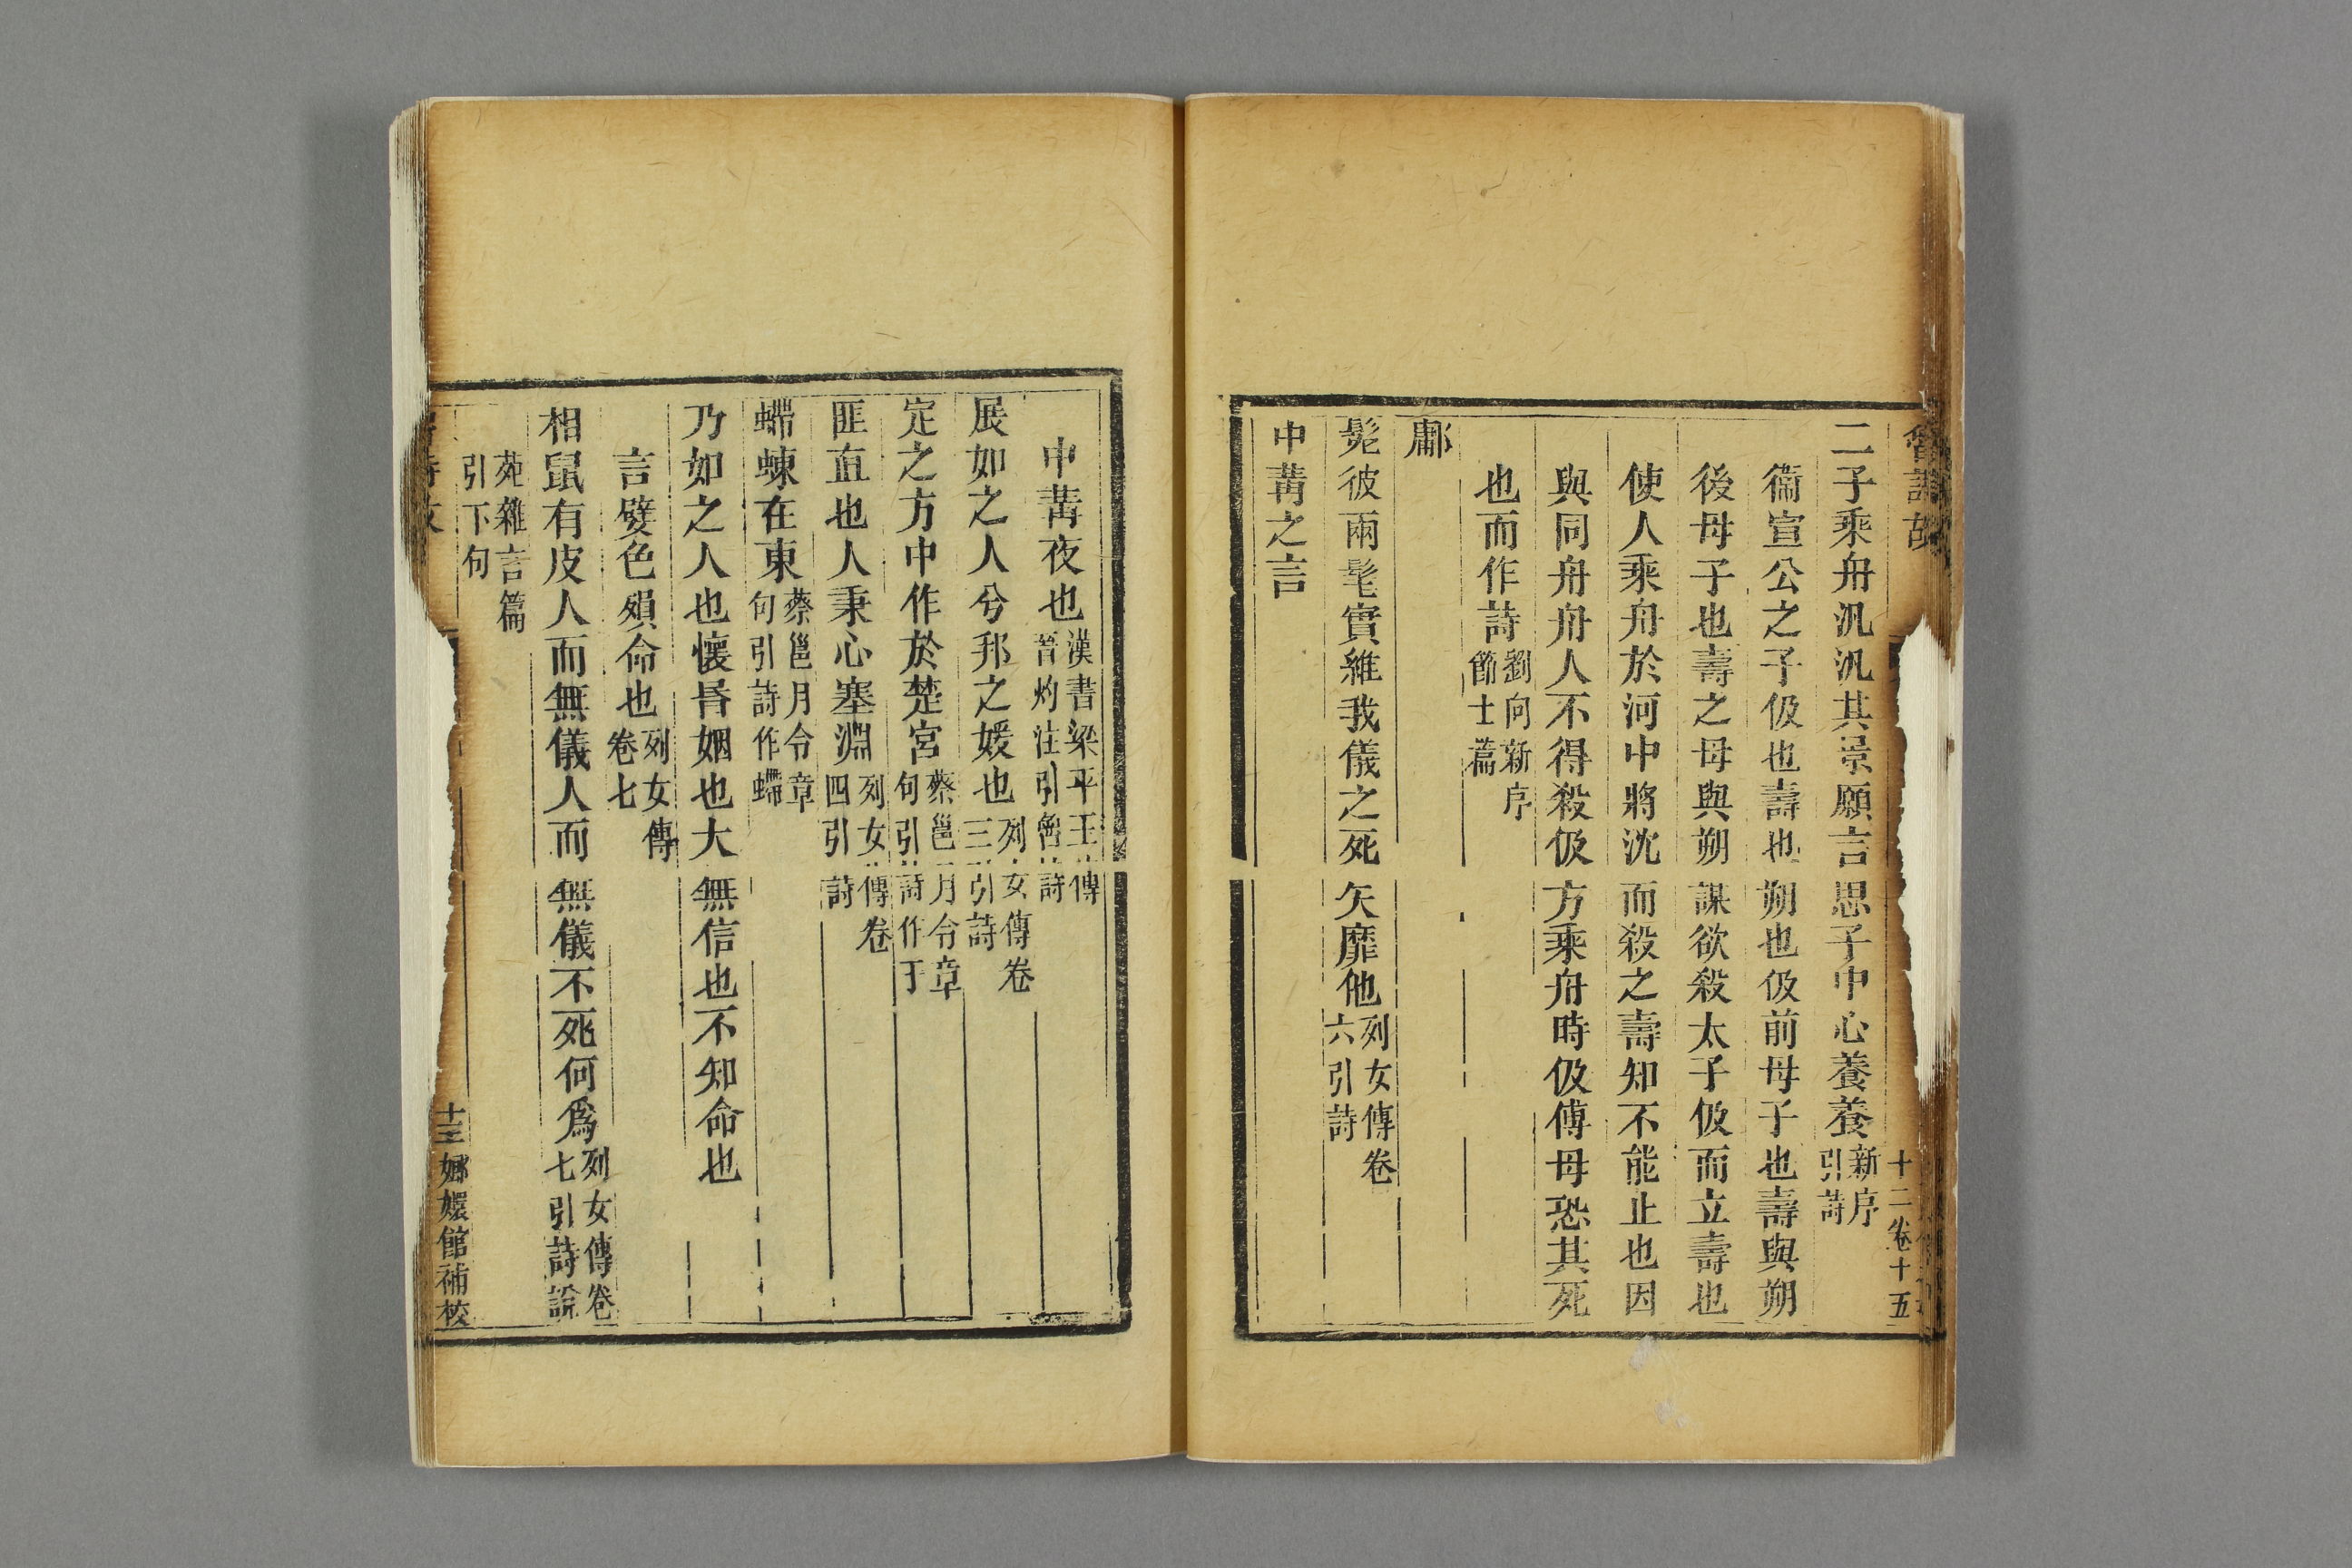 魯詩故
十二卷十五
二子乘舟汎汎其景願言思子中心養養新序引詩
衞宣公之子伋也壽也朔也伋前母子也壽與朔
後母子也壽之母與朔謀欲殺太子伋而立壽也
使人乘舟於河中將沈而殺之壽知不能止也因
與同舟舟人不得殺伋方乘舟時伋傅母恐其死
也而作詩劉向新序節士篇
鄘
髧彼兩髦實維我儀之死矢靡他列女傳卷六引詩
中冓之言
中冓夜也漢書梁平王傳晉灼注引魯詩
展如之人兮邦之媛也列女傳卷三引詩
定之方中作於楚宮蔡邕月令章句引詩作于
匪直也人秉心塞淵列女傳卷四引詩
螮蝀在東蔡邕月令章句引詩作螮
乃如之人也懷昏姻也大無信也不知命也
言嬖色殞命也列女傳卷七
相鼠有皮人而無儀人而無儀不死何爲列女傳卷七引詩說
苑雜言篇引下句
十三
嫏嬛館補校